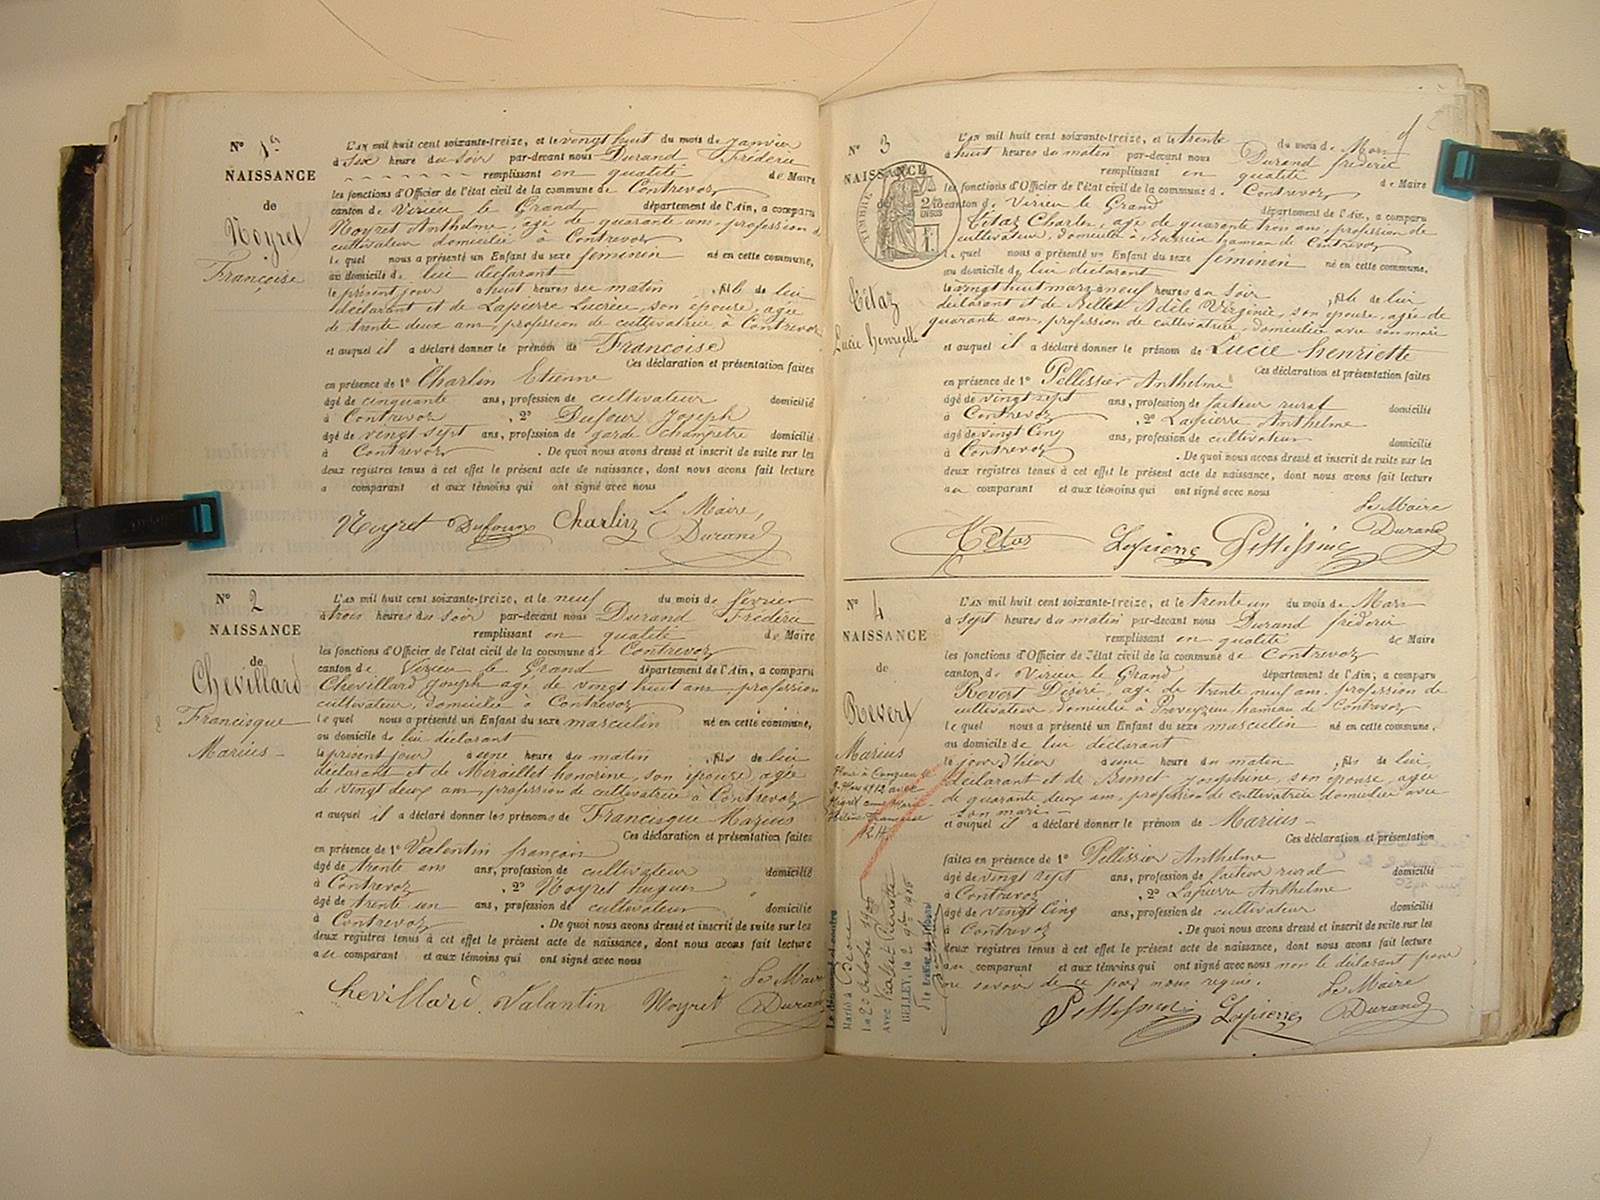 N° 1er
NAISSANCE
de
Noyret
Françoise
L'AN mil huit cent soixante-treize, et le vingt huit du mois de Janvier
à Six heure du soir par-devant nous Durand Fréderic
remplissant en qualité de Maire
les fonctions d'Officier de l'état civil de la commune de Contrevoz
canton de Virieu le Grand département de l'Ain, a comparu
Noyret Anthelme, agé de quarante ans, profession de
cultivateur domicilié à Contrevoz
le quel nous a présenté un Enfant du sexe feminin né en cette commune,
au domicile de lui déclarant
le présent jour à huit heures du matin , fille de lui
déclarant et de Lapierre Lucrèce, son épouse, agée
de trente deux ans, profession de cultivatrice à Contrevoz
et auquel il a déclaré donner le prénom de Françoise
Ces déclaration et présentation faites
en présence de 1° Charlin Etienne
âgé de cinquante ans, profession de cultivateur domicilié
à Contrevoz , 2° Dufour Joseph
âgé de vingt sept ans, profession de garde champêtre domicilié
à Contrevoz . De quoi nous avons dressé et inscrit de suite sur les
deux registres tenus à cet effet le présent acte de naissance, dont nous avons fait lecture
a comparant et aux témoins qui ont signé avec nous
Le Maire,
Noyret Dufour Charlin Durand
N° 2
NAISSANCE
de
Chevillard
Francisque
Marius
L'AN mil huit cent soixante-treize, et le neuf du mois de février
à trois heures du soir par-devant nous Durand Fréderic
remplissant en qualité de Maire
les fonctions d'Officier de l'état civil de la commune de Contrevoz
canton de Virieu le Grand département de l'Ain, a comparu
Chevillard Joseph agé de vingt huit ans profession
cultivateur, domicilié à Contrevoz
le quel nous a présenté un Enfant du sexe masculin né en cette commune,
au domicile de lui déclarant
le présent jour à une heure du matin , fils de lui
déclarant et de Miraillet honorine, son épouse, agée
de vingt deux ans, profession de cultivatrice à Contrevoz
et auquel il a déclaré donner les prénoms de Francisque Marius
Ces déclaration et présentation faites
en présence de 1° Valentin françois
âgé de trente ans ans, profession de cultivateur domicilié
à Contrevoz , 2° Noyret hugues
âgé de trente un ans, profession de cultivateur domicilié
à Contrevoz . De quoi nous avons dressé et inscrit de suite sur les
deux registres tenus à cet effet le présent acte de naissance, dont nous avons fait lecture
au comparant et aux témoins qui ont signé avec nous
Le Maire
Chevillard Valantin Noyret Durand
N° 3
NAISSANCE
Tétaz
Lucie henriette
TIMBRE
L'AN mil huit cent soixante-treize, et le trente du mois de Mars
à huit heures du matin par-devant nous Durand fréderic
remplissant en qualité de Maire
les fonctions d'Officier de l'état civil de la commune de Contrevoz
canton de Virieu le Grand département de l'Ain, a comparu
Tétaz Charles, agé de quarante trois ans, profession de
cultivateur, domicilié à hameau de Contrevoz
le quel nous a présenté un Enfant du sexe feminin né en cette commune.
au domicile de lui déclarant
le vingt huit mars à neuf heures du soir , fille de lui
déclarant et de Billet Adèle Virginie, son épouse, agée de
quarante ans, profession de cultivatrice, domiciliée avec son mari
et auquel il a déclaré donner le prénom de Lucie henriette
Ces déclaration et présentation faites
en présence de 1° Pellissier Anthelme
âgé de vingt sept ans, profession de facteur rural domicilié
à Contrevoz , 2° Lapierre Anthelme
âgé de vingt Cinq ans, profession de cultivateur domicilié
à Contrevoz . De quoi nous avons dressé et inscrit de suite sur les
deux registres tenus à cet effet le présent acte de naissance, dont nous avons fait lecture
au comparant et aux témoins qui ont signé avec nous
Le Maire
Tétaz Lapierre Pellissier Durand
N° 4
NAISSANCE
de
Revert
Marius
L'AN mil huit cent soixante-treize, et le trente un du mois de Mars
à sept heures du matin par-devant nous Durand fréderic
remplissant en qualité de Maire
les fonctions d'Officier de l'état civil de la commune de Contrevoz
canton de Virieu le Grand département de l'Ain, a comparu
Revert Désiré, agé de trente neuf ans. profession de
cultivateur, domicilié à Preveyzieu hameau de Contrevoz
le quel nous a présenté un Enfant du sexe masculin né en cette commune.
au domicile de lui déclarant
le jour d'hier à une heure du matin , fils de lui,
déclarant et de Josephine, son épouse, agée
de quarante deux ans, profession de cultivatrice domiciliée avec
son mari
et auquel il a déclaré donner le prénom de Marius
Ces déclaration et présentation
faites en présence de 1° Pellissier Anthelme
âgé de vingt sept ans, profession de facteur rural domicilié
à Contrevoz , 2° Lapierre Anthelme
âgé de vingt Cinq ans, profession de cultivateur domicilié
à Contrevoz . De quoi nous avons dressé et inscrit de suite sur les
deux registres tenus à cet effet le présent acte de naissance, dont nous avons fait lecture
au comparant et aux témoins qui ont signé avec nous non le déclarant pour
ne savoir de ce par nous requis.
Le Maire
Pellissier Lapierre Durand
Marié à
le 2 Octobre 1905
avec
BELLEY, le